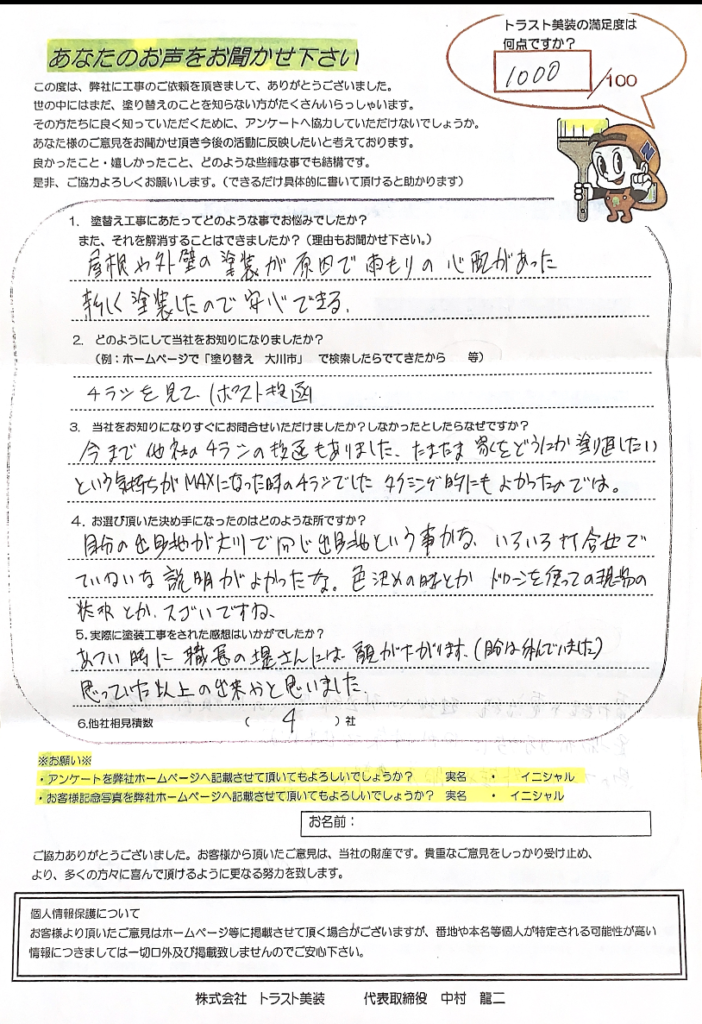 あなたのお声をお聞かせ下さい
トラスト美装の満足度は
何点ですか？
1000 /100
この度は、弊社に工事のご依頼を頂きまして、ありがとうございました。
世の中にはまだ、塗り替えのことを知らない方がたくさんいらっしゃいます。
その方たちに良く知っていただくために、アンケートへ協力していただけないでしょうか。
あなた様のご意見をお聞かせ頂き今後の活動に反映したいと考えております。
良かったこと・嬉しかったこと、どのような些細な事でも結構です。
是非、ご協力よろしくお願いします。（できるだけ具体的に書いて頂けると助かります）
1. 塗替え工事にあたってどのような事でお悩みでしたか？
また、それを解消することはできましたか？（理由もお聞かせ下さい。）
屋根や外壁の塗装が原因で雨もりの心配があった
新しく塗装したので安心できる。
2. どのようにして当社をお知りになりましたか？
（例：ホームページで「塗り替え 大川市」 で検索したらでてきたから 等）
チラシを見て、（ポスト投函
3. 当社をお知りになりすぐにお問合せいただけましたか？しなかったとしたらなぜですか？
今まで他社のチラシの投函もありました、たまたま家をどうにか塗り直したい
という気持ちがMAXになった時のチラシでした タイミング的にもよかったのでは。
4. お選び頂いた決め手になったのはどのような所ですか？
自分の出身地が大川で同じ出身地という事かな、いろいろ打合せで
ていねいな説明がよかったな。色決めの時とか ドローンを使っての現場の
状況とか、スゴいですね、
5. 実際に塗装工事をされた感想はいかがでしたか？
あつい時に職長の堤さんには頭がさがります、（盆は休んでいました）
思っていた以上の出来かと思いました
6.他社相見積数 （ 4 ）社
※お願い※
・アンケートを弊社ホームページへ記載させて頂いてもよろしいでしょうか？ 実名 ・ イニシャル
・お客様記念写真を弊社ホームページへ記載させて頂いてもよろしいでしょうか？ 実名 ・ イニシャル
お名前：
ご協力ありがとうございました。お客様から頂いたご意見は、当社の財産です。貴重なご意見をしっかり受け止め、
より、多くの方々に喜んで頂けるように更なる努力を致します。
個人情報保護について
お客様より頂いたご意見はホームページ等に掲載させて頂く場合がございますが、番地や本名等個人が特定される可能性が高い
情報につきましては一切口外及び掲載致しませんのでご安心下さい。
株式会社 トラスト美装 代表取締役 中村 龍二